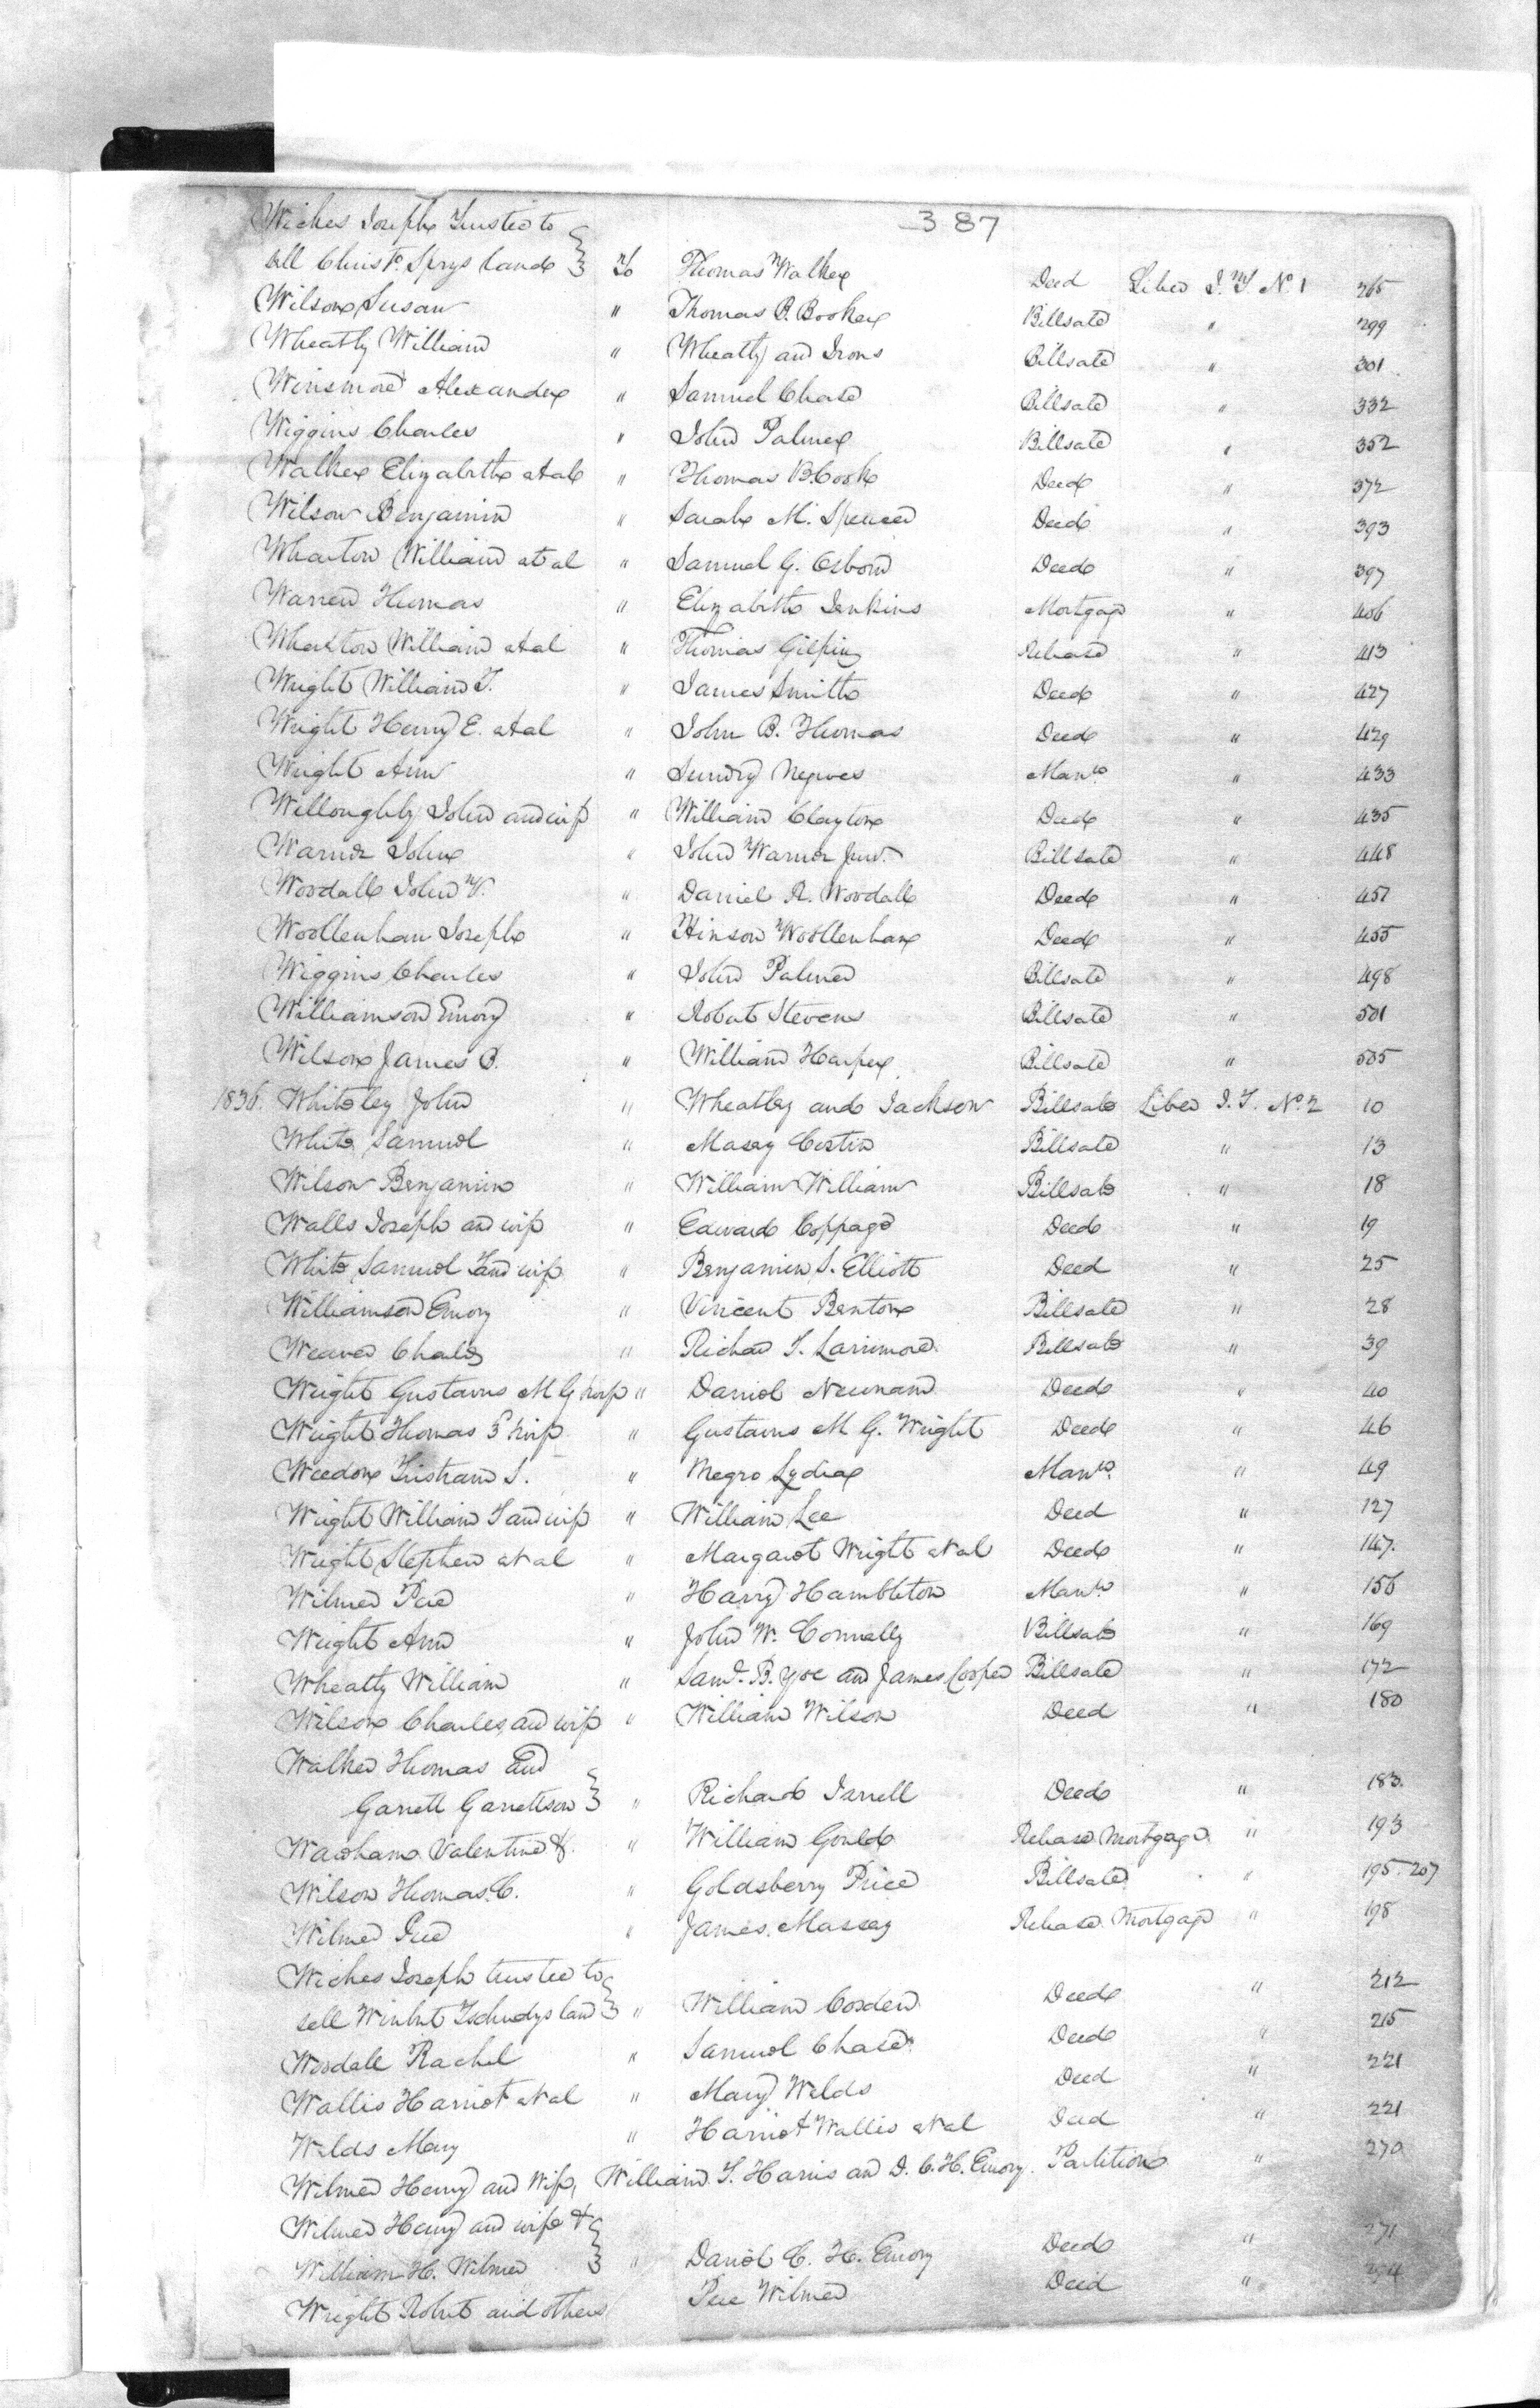 387
Wickes Joseph Trustee to
sell Christr. Sprys land } To Thomas Walker Deed Liber J.T. No. 1 265
Wilson Susan " Thomas B. Booker Billsale " 299
Wheatly William " Wheatly and Irons Billsale " 301
Winsmore Alexander " Samuel Chase Billsale " 332
Wiggins Charles " John Palmer Billsale " 352
Walker Elizabeth et al " Thomas B. Cook Deed " 372
Wilson Benjamin " Sarah M. Spencer Deed " 393
Wharton William et al " Samuel G. Osborn Deed " 397
Warren Thomas " Elizabeth Jenkins Mortgage " 406
Wharton William et al " Thomas Gilpin Release " 413
Wright William T. " James Smith Deed " 427
Wright Henry E. et al " John B. Thomas Deed " 429
Wright Ann " Sundry Negroes Mann. " 433
Willoughby John and wife " William Clayton Deed " 435
Warner John " John Warner Junr. Billsale " 448
Woodall John W. " Daniel R. Woodall Deed " 451
Woollenhan Joseph " Hinson Woollenhan Deed " 455
Wiggins Charles " John Palmer Billsale " 498
Williamson Emory " Robert Stevens Billsale " 501
Wilson James B. " William Harper Billsale " 505
1836. Whiteley John " Wheatley and Jackson Billsale Liber J.T. No. 2 10
White Samuel " Masey Costin Billsale " 13
Wilson Benjamin " William William Billsale " 18
Walls Joseph and wife " Edward Coppage Deed " 19
White Samuel T and wife " Benjamin S. Elliott Deed " 25
Williamson Emory " Vincent Benton Billsale " 28
Weaver Charles " Richard T. Larrimore Billsale " 39
Wright Gustavus M G & wife " Daniel Newnam Deed " 40
Wright Thomas 3d & wife " Gustavus M G. Wright Deed " 46
Weedon Tristram S. " Negro Lydia Mann. " 49
Wright William T and wife " William Lee Deed " 127
Wright Stephen et al " Margaret Wright et al Deed " 147.
Wilmer Pere " Harry Hambleton Mann. " 156
Wright Ann " John W. Connelly Billsale " 169
Wheatly William " Saml. B. Yoe and James Cooper Billsale " 172
Wilson Charles and wife " William Wilson Deed " 180
Walker Thomas and
Garrett Garrettson } " Richard Jarrell Deed " 183.
Wauham Valentine " William Gould Release Mortgage " 193
Wilson Thomas C. " Goldsberry Price Billsale " 195. 207
Wilmer Pere " James Massey Release Mortgage " 198
Wickes Joseph trustee to
sell Winbert Tschudys land } " William Cosden Deed " 212
Woodall Rachel " Samuel Chase Deed " 215
Wallis Harriot et al " Mary Welds Deed " 221
Welds Mary " Harriot Wallis et al Deed " 221
Wilmer Henry and Wife, William T. Harris and D. C. H. Emory. Partition " 270
Wilmer Henry and wife &
William H. Wilmer } " Daniel C. H. Emory Deed " 271
Wright Robert and others Pere Wilmer Deed " 294